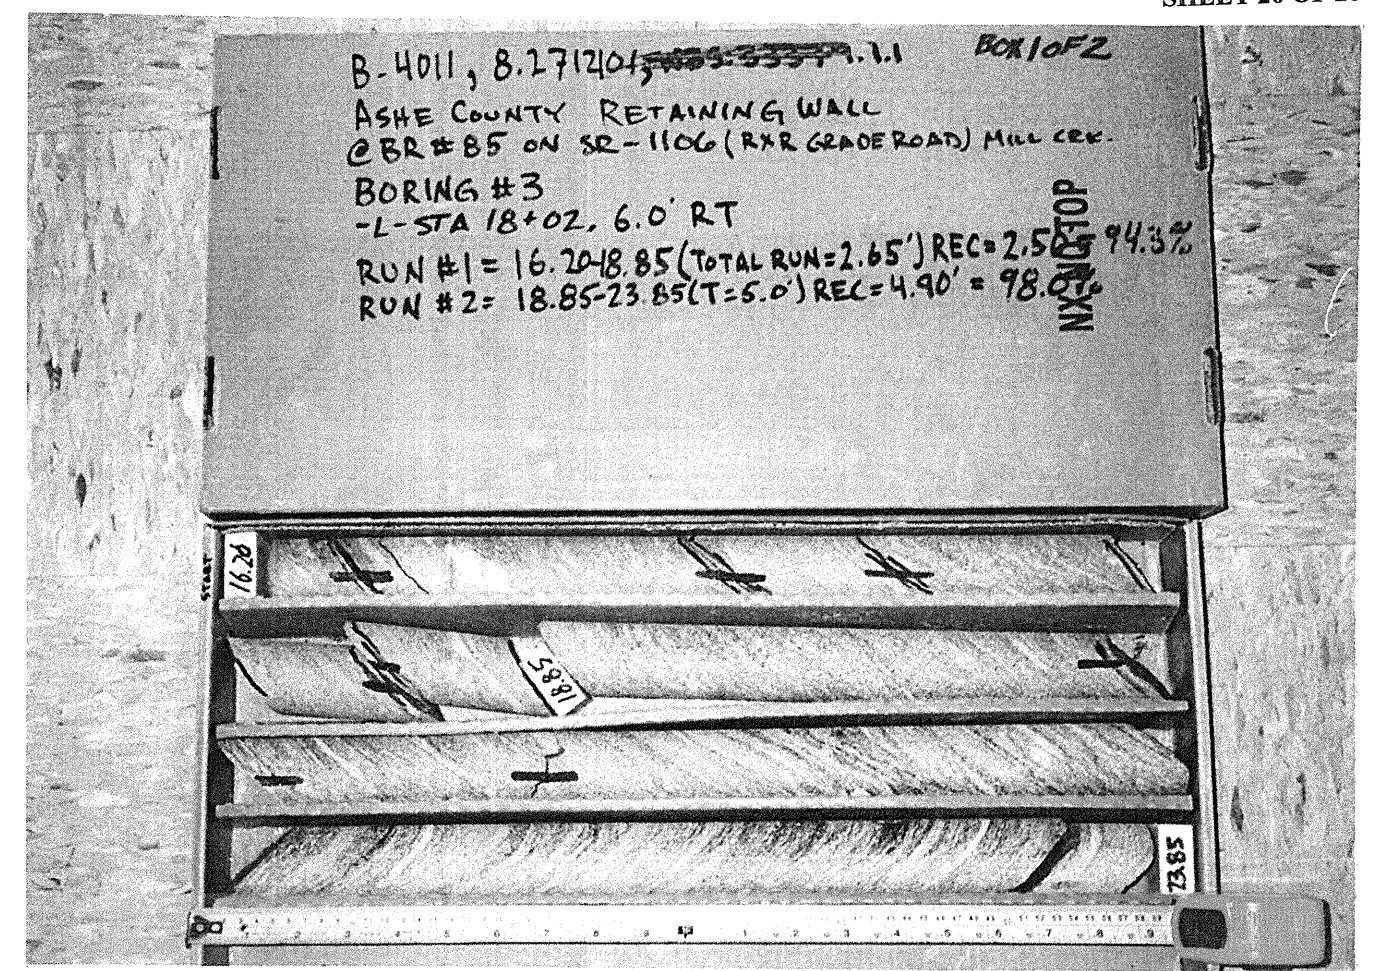 BOX 1 OF 2
B-4011, 8.2712101, .1.1
ASHE COUNTY RETAINING WALL
@ BR #85 ON SR-1106 (RXR GRADE ROAD) MILL CRK.
BORING #3
-L- STA 18+02, 6.0' RT
RUN #1 = 16.20-18.85 (TOTAL RUN = 2.65') REC = 94.3%
RUN #2 = 18.85-23.85 (T=5.0') REC = 4.90' = 98.0%
TOP
START
16.20
18.85
23.85